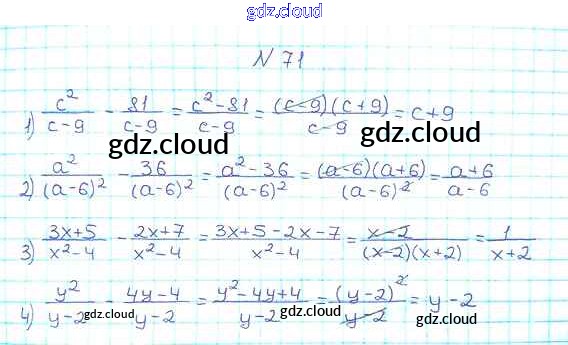 gdz.cloud
N 71
1) c²/(c-9) - 81/(c-9) = (c²-81)/(c-9) = (c-9)(c+9)/(c-9) = c+9
gdz.cloud gdz.cloud
2) a²/(a-6)² - 36/(a-6)² = (a²-36)/(a-6)² = (a-6)(a+6)/(a-6)² = (a+6)/(a-6)
3) (3x+5)/(x²-4) - (2x+7)/(x²-4) = (3x+5-2x-7)/(x²-4) = (x-2)/((x-2)(x+2)) = 1/(x+2)
4) y²/(y-2) - (4y-4)/(y-2) = (y²-4y+4)/(y-2) = (y-2)²/(y-2) = y-2
gdz.cloud gdz.cloud